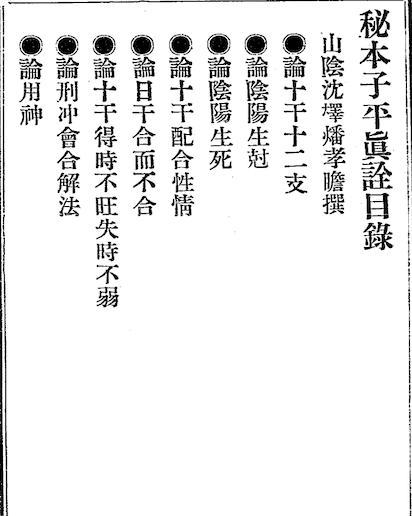 秘本子平眞詮目錄
山陰沈𡑞燔孝瞻撰
●論十干十二支
●論陰陽生尅
●論陰陽生死
●論十干配合性情
●論日干合而不合
●論十干得時不旺失時不弱
●論刑冲會合解法
●論用神